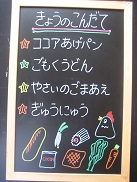 きょうのこんだて
ココアあげパン
ごもくうどん
やさいのごまあえ
ぎゅうにゅう